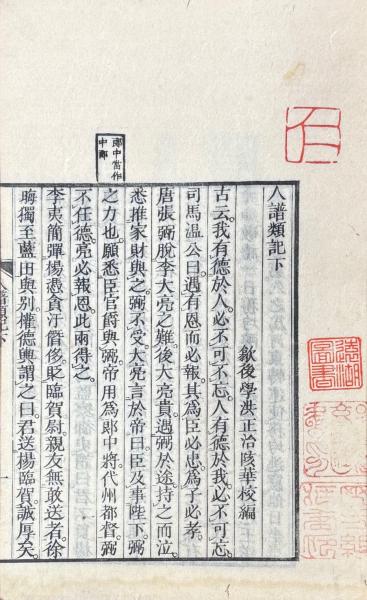 人譜類記下
歙後學洪正治陔華校編
古云。我有德於人。必不可不忘。人有德於我。必不可忘。
司馬温公曰。遇有恩而必報。其爲臣必忠。爲子必孝。
唐張弼脫李大亮之難。後大亮貴。遇弼於途。持之而泣。
悉推家財與之。弼不受。大亮言於帝曰。臣及事陛下。弼
之力也。願悉臣官爵與弼。帝用爲郞中將。代州都督。弼
不任德。亮必報恩。此兩得之。
李夷簡彈楊憑貪汙僭侈。貶臨賀尉。親友無敢送者。徐
晦獨至藍田與別。權德輿謂之曰。君送楊臨賀。誠厚矣。
郞中當作
中郞
人譜類記下
一